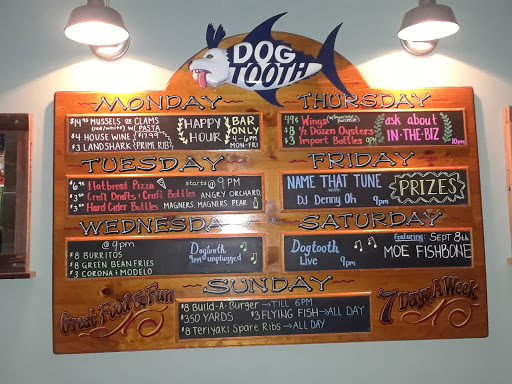 DOG
TOOTH
MONDAY
$14.95 MUSSELS OR CLAMS
(red/white) w/ PASTA
$4 HOUSE WINE
$3 LANDSHARK
$17.99
PRIME RIB
HAPPY
HOUR
BAR
ONLY
4-6PM
MON-FRI
THURSDAY
49¢ Wings
$8 ½ Dozen Oysters
$3 Import Bottles 9PM
ask about
IN-THE-BIZ
10pm
TUESDAY
$6.95 Flatbread Pizza starts @ 9PM
$3.00 Craft Drafts & Craft Bottles ANGRY ORCHARD,
$3.00 Hard Cider Bottles MAGNERS, MAGNERS PEAR
FRIDAY
NAME THAT TUNE
with
DJ Denny Oh 9pm
PRIZES
WEDNESDAY
@ 9pm
$8 BURRITOS
$8 GREEN BEAN FRIES
$3 CORONA & MODELO
Dogtooth
9pm unplugged
SATURDAY
Dogtooth
Live 9pm
Featuring: SEPT 8th
MOE FISHBONE
SUNDAY
$8 Build-A-Burger → TILL 6PM
$3.50 YARDS $3 FLYING FISH → ALL DAY
$8 Teriyaki Spare Ribs → ALL DAY
Great Food & Fun
7 Days A Week